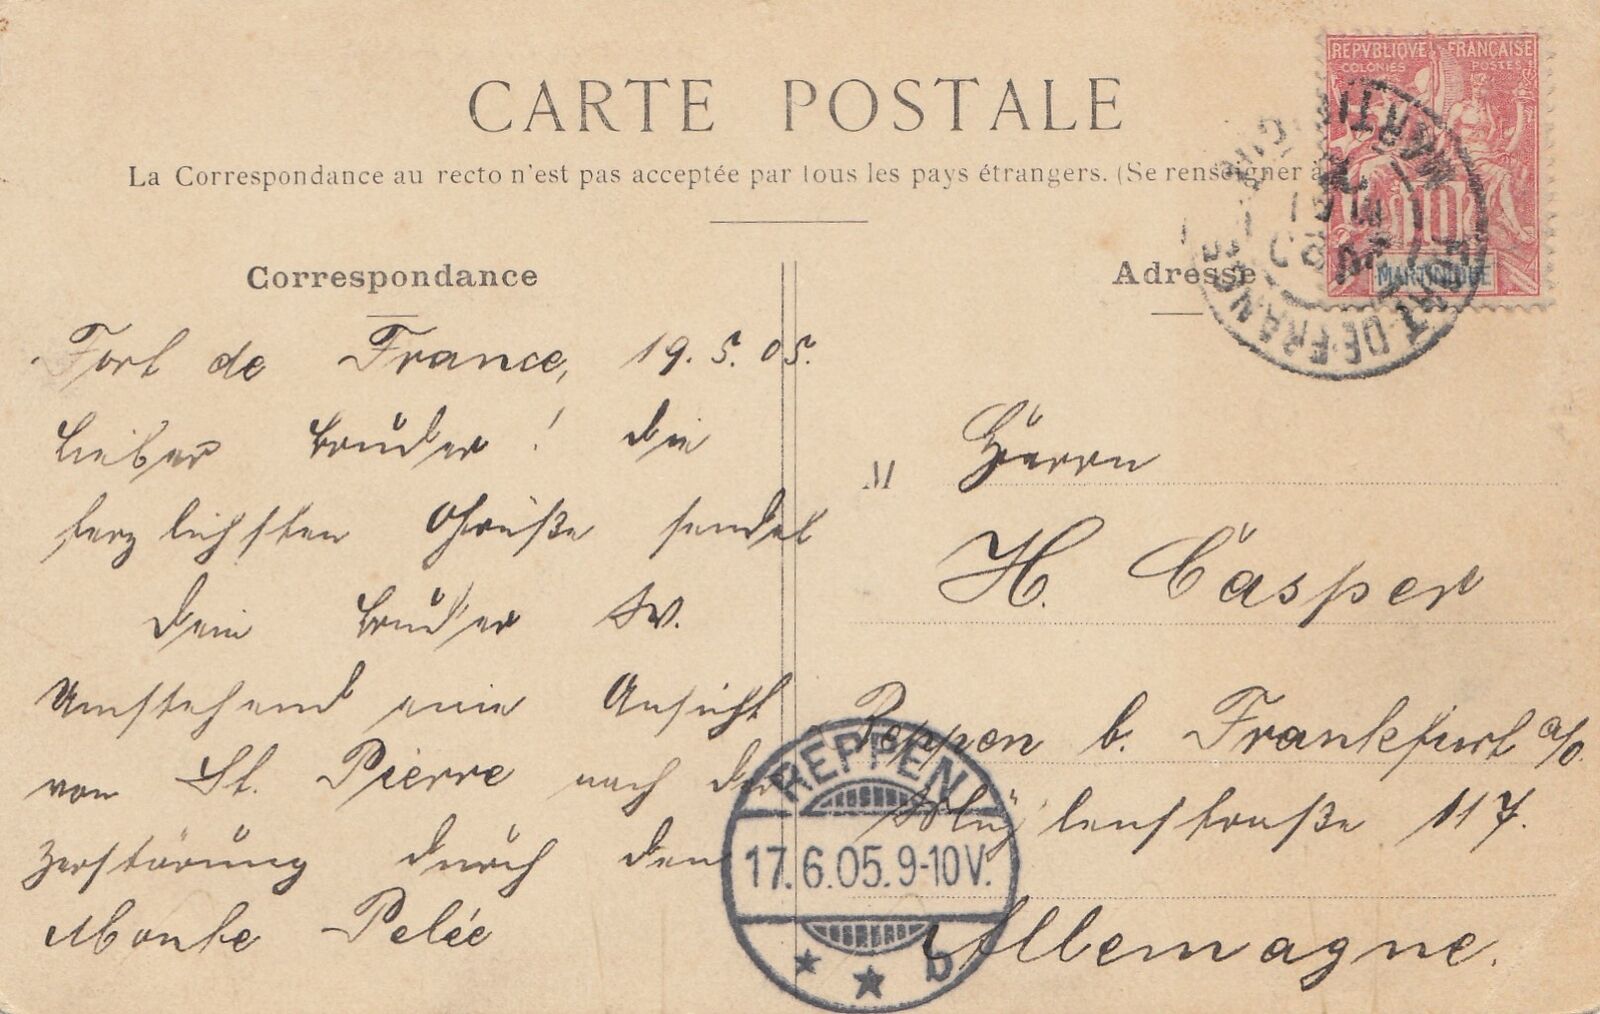 CARTE POSTALE
La Correspondance au recto n'est pas acceptée par tous les pays étrangers. (Se renseigner à
Correspondance
Fort de France, 19. 5. 05.
Lieber Bruder! Die
herzlichsten Grüße sendet
Dein Bruder W.
Umstehend eine Ansicht
von St. Pierre nach der
Zerstörung durch den
Monte Pelée
Adresse
M
Herrn
H. Casper
Reppen b. Frankfurt a/O.
Mühlenstraße 117.
Allemagne.
REPVBLIQVE FRANÇAISE
COLONIES POSTES
10
MARTINIQUE
MARTINIQUE
FORT-DE-FRANCE
REPPEN
17.6.05.9-10V.
b